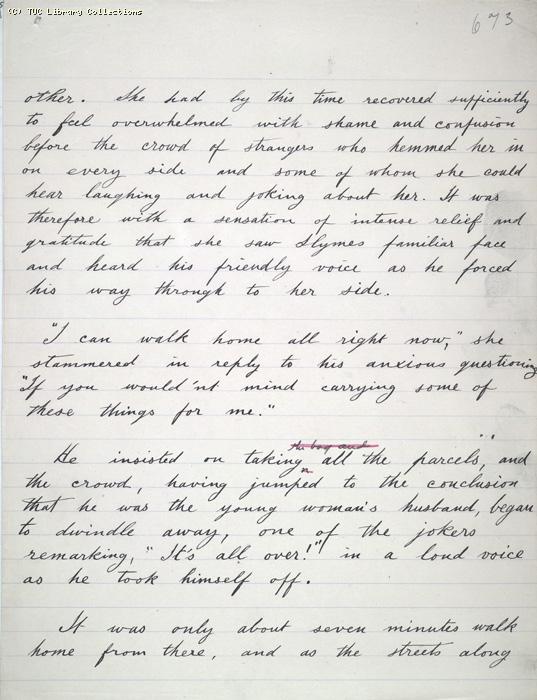 (C) TUC Library Collections
673
other. She had by this time recovered sufficiently
to feel overwhelmed with shame and confusion
before the crowd of strangers who hemmed her in
on every side and some of whom she could
hear laughing and joking about her. It was
therefore with a sensation of intense relief and
gratitude that she saw Slymes familiar face
and heard his friendly voice as he forced
his way through to her side.
"I can walk home all right now," she
stammered in reply to his anxious questioning
"If you would'nt mind carrying some of
these things for me."
the bag and
He insisted on taking all the parcels, and
the crowd, having jumped to the conclusion
that he was the young woman's husband, began
to dwindle away, one of the jokers
remarking, "It's all over!" in a loud voice
as he took himself off.
It was only about seven minutes walk
home from there, and as the streets along